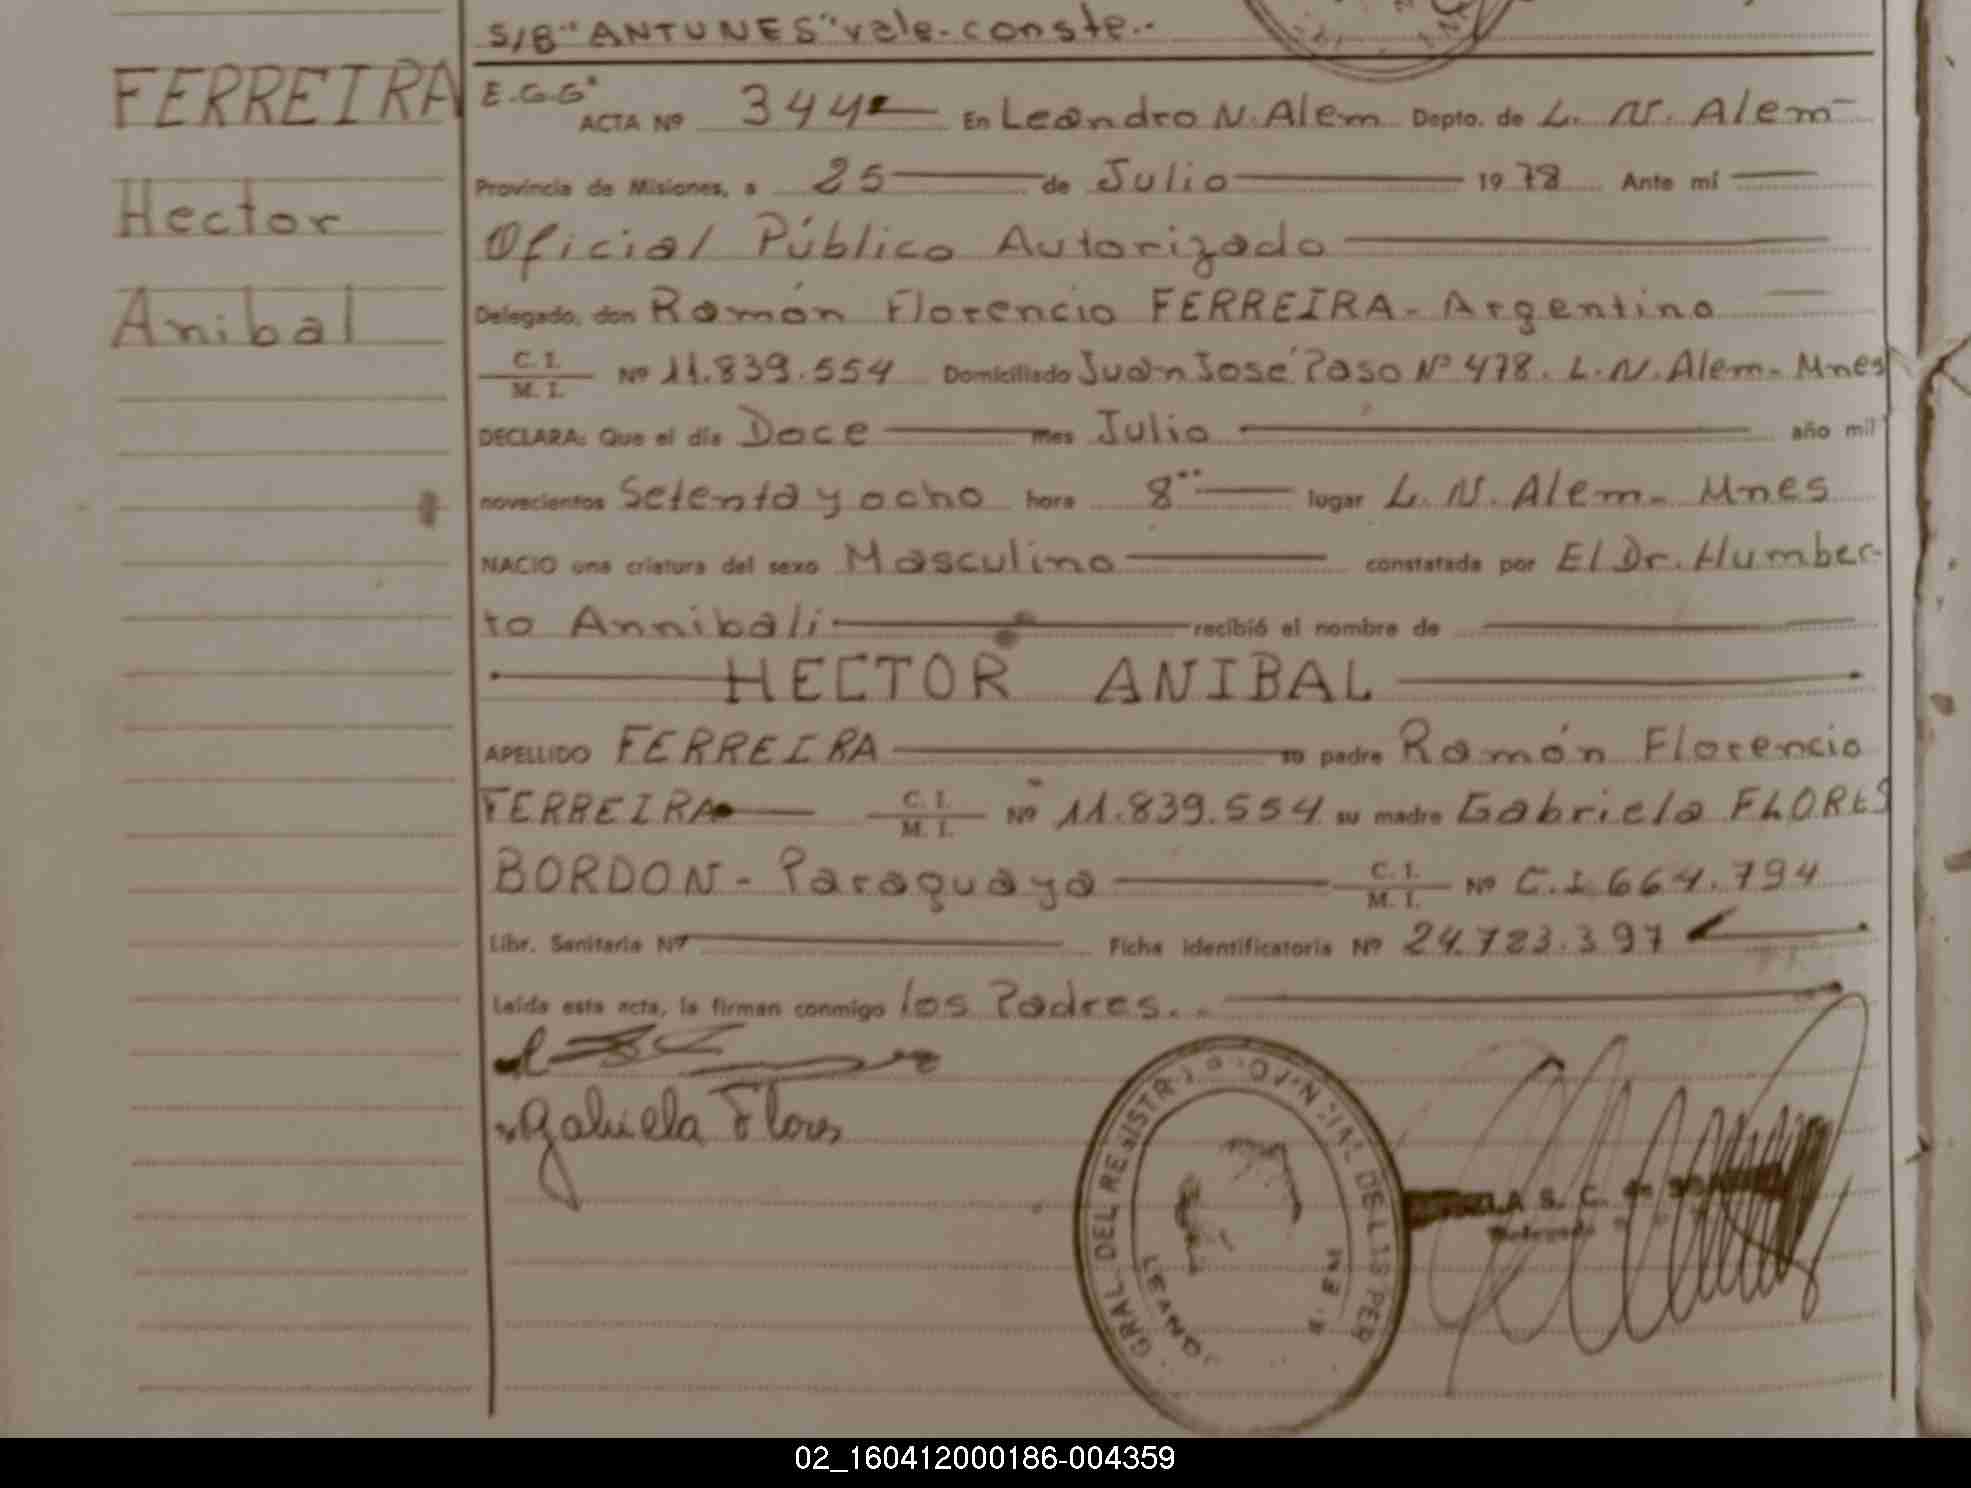 S/B "ANTUNES" vale. conste.-
FERREIRA
Hector
Anibal
E.G.G.
ACTA Nº 344 En Leandro N. Alem Depto. de L. N. Alem
Provincia de Misiones, a 25 de Julio 1978 Ante mí
Oficial Público Autorizado
Delegado, don Ramón Florencio FERREIRA - Argentino
C. I. / M. I. Nº 11.839.554 Domiciliado Juan José Paso Nº 478. L. N. Alem - Mnes
DECLARA: Que el día Doce mes Julio año mil
novecientos Setenta y ocho hora 8 lugar L. N. Alem - Mnes
NACIO una criatura del sexo Masculino constatada por El Dr. Humber-
to Annibali recibió el nombre de
HECTOR ANIBAL
APELLIDO FERREIRA su padre Ramón Florencio
FERREIRA C. I. / M. I. Nº 11.839.554 su madre Gabriela FLORES
BORDON - Paraguaya C. I. / M. I. Nº C.I. 664.794
Libr. Sanitaria Nº Ficha identificatoria Nº 24.723.397
Leída esta acta, la firman conmigo los Padres.
Gabriela Flores
GRAL DEL REGISTRO PROVINCIAL DE LAS PER
LEANDRO N. ALEM
S. C. de
Delegada
02_160412000186-004359